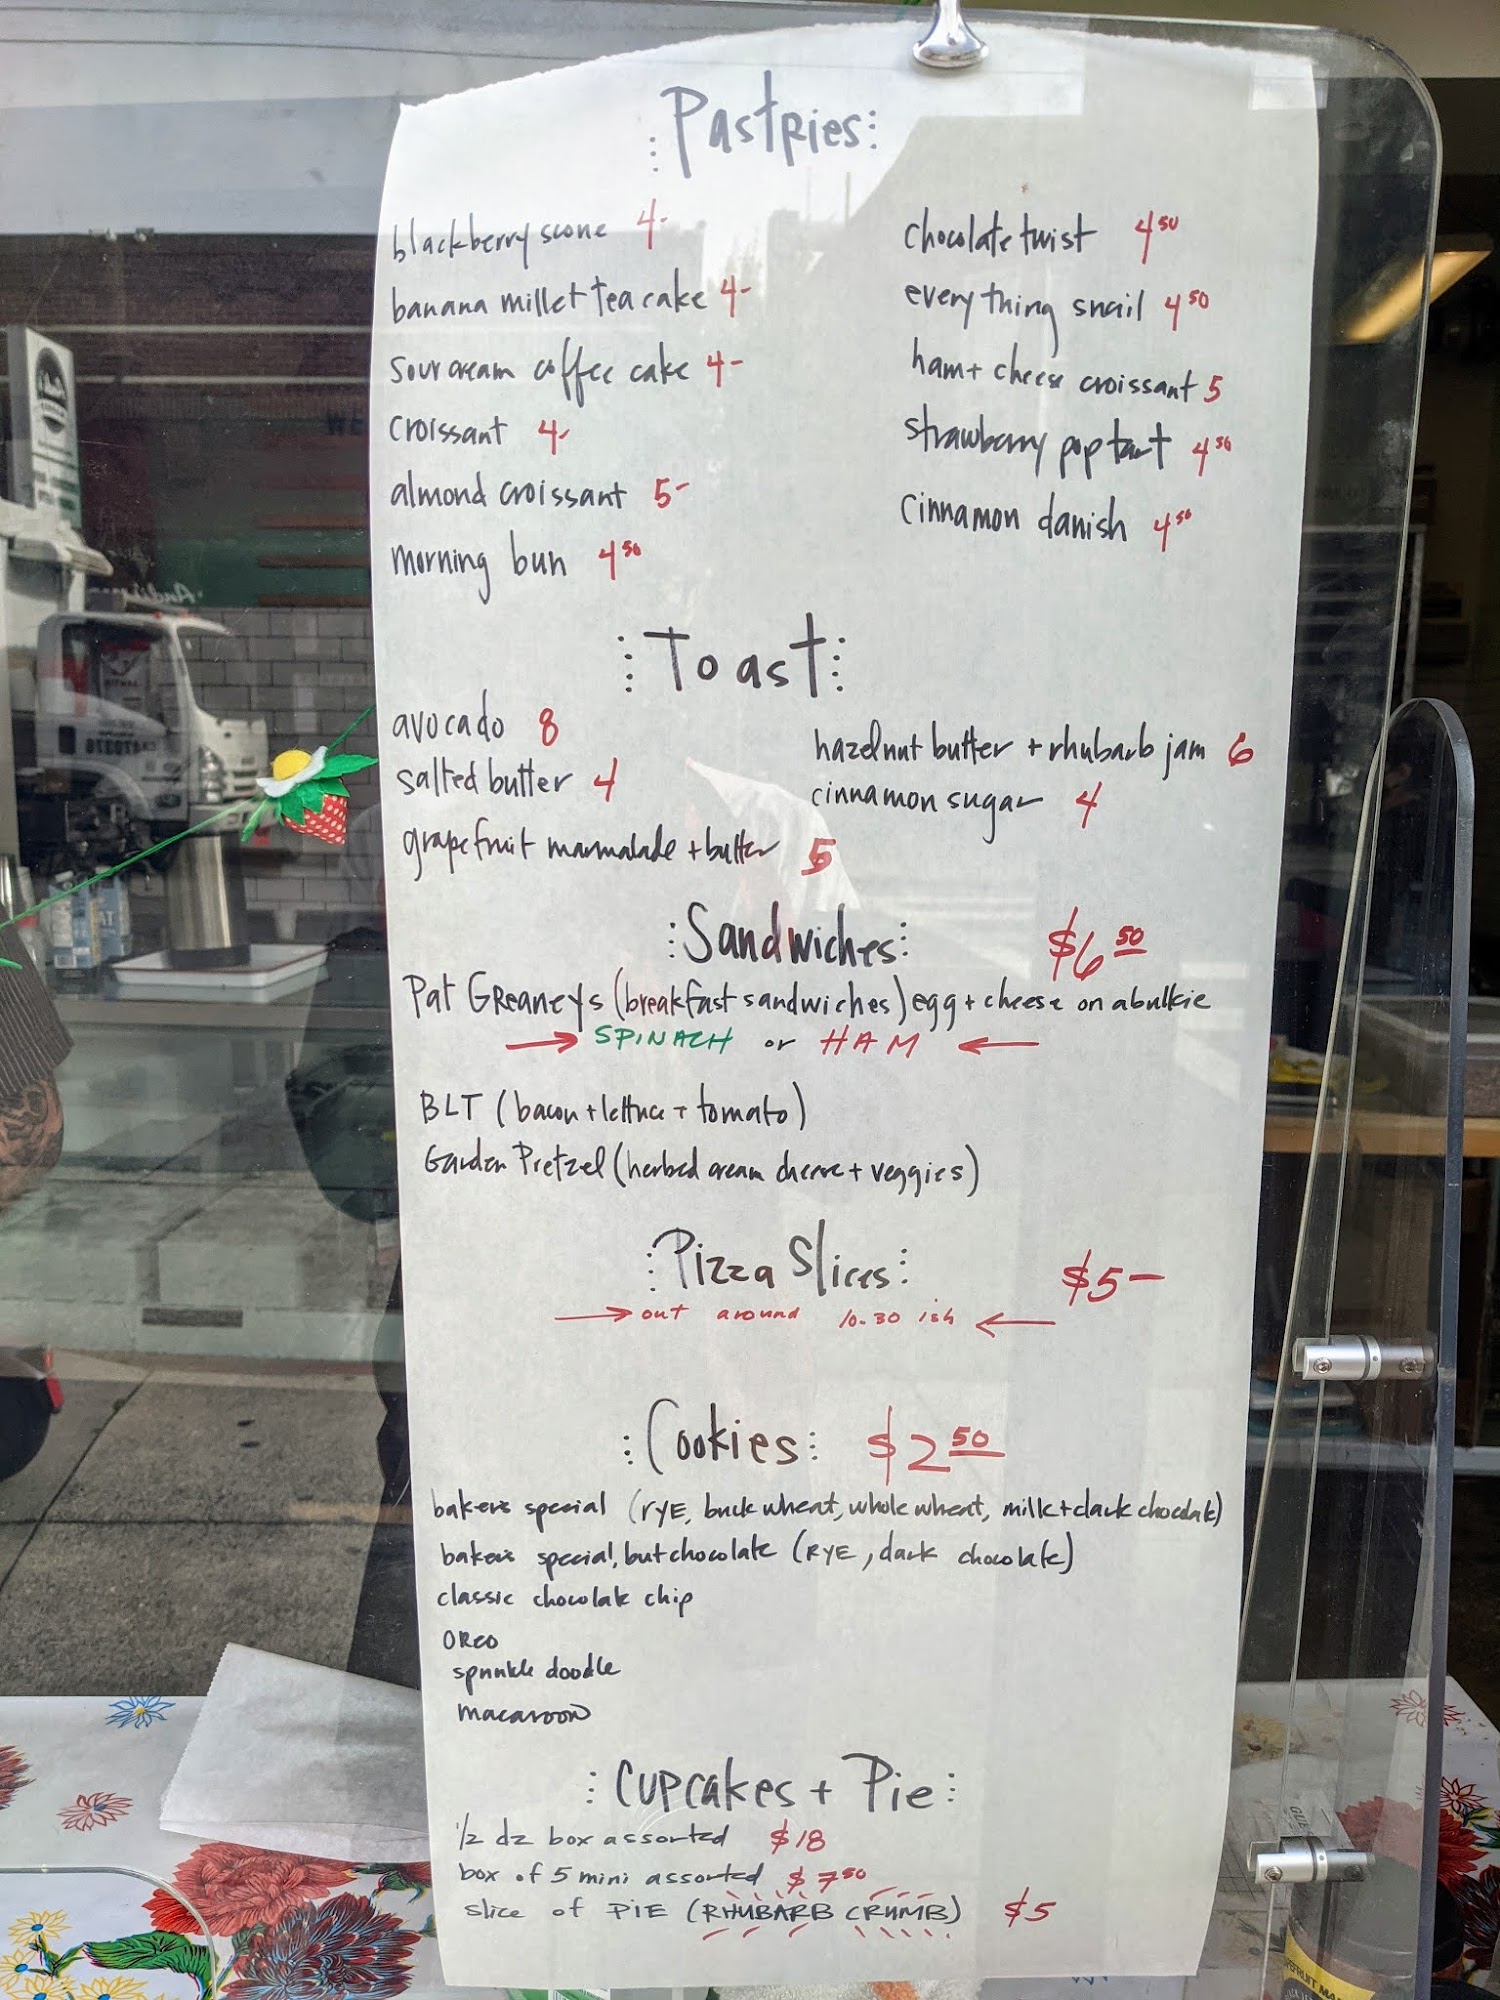 Pastries:
blackberry scone 4-
banana millet tea cake 4-
sour cream coffee cake 4-
croissant 4-
almond croissant 5-
morning bun 4 50
chocolate twist 4 50
everything snail 4 50
ham + cheese croissant 5
strawberry pop tart 4 50
cinnamon danish 4 50
Toast
avocado 8
salted butter 4
grapefruit marmalade + butter 5
hazelnut butter + rhubarb jam 6
cinnamon sugar 4
Sandwiches: $6 50
Pat Greaneys (breakfast sandwiches) egg + cheese on a bulkie
→ SPINACH or HAM ←
BLT (bacon + lettuce + tomato)
Garden Pretzel (herbed cream cheese + veggies)
Pizza Slices: $5-
→ out around 10-30 ish ←
Cookies: $2 50
baker's special (RYE, buckwheat, whole wheat, milk + dark chocolate)
baker's special, but chocolate (RYE, dark chocolate)
classic chocolate chip
OREO
sprinkle doodle
macaroon
Cupcakes + Pie
1/2 dz box assorted $18
box of 5 mini assorted $7 50
slice of PIE (RHUBARB CRUMB) $5